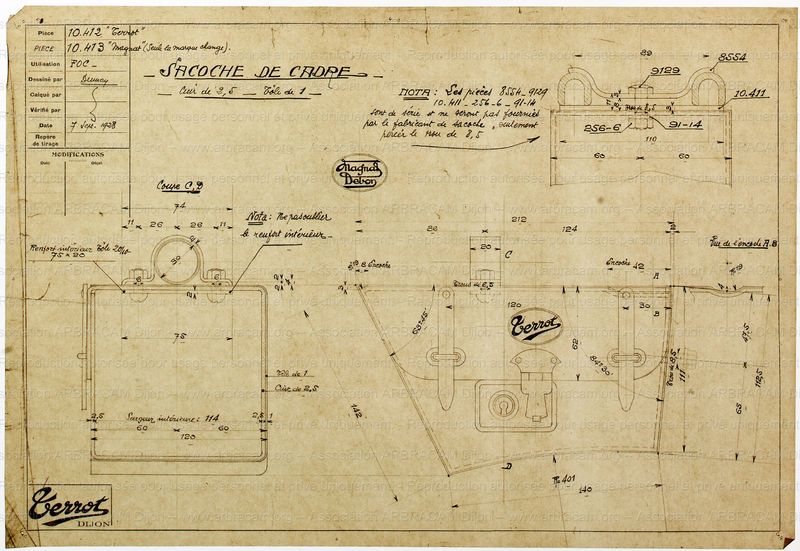 Pièce 10.412 "Terrot"
PIECE 10.413 "Magnat" (Seule la marque change).
Utilisation FOC_
Dessiné par
Calqué par
Vérifié par
Date 7 Sept. 1928
Repère de tirage
MODIFICATIONS
Date Objet
SACOCHE DE CADRE
Cuir de 2,5 _ Tôle de 1
NOTA: Les pièces 8554_9129
10.411_256-6_91-14
sont de série et ne seront pas fournies
par le fabricant de sacoche, seulement
percer le trou de 8,5
82
8554
9129
10.411
Trou de 8,5
256-6
91-14
110
60
60
Magnat Debon
Coupe C,D
74
11
26
26
11
Nota: Ne pas oublier
le renfort intérieur_
Renfort intérieur Tôle 20/10
75 x 20
30
6
6
75
Tôle de 1
Cuir de 2,5
Largeur intérieure: 114
2,5
60
60
2,5
1
120
212
86
124
20
C
Encoche
Encoche
42
A
Trous de 6,5
120
30
B
Vue de l'encoche A.B
Terrot
62
83°45'
84°30'
Trou de 8,5
111
47,5
112,5
65
142
D
R=401
140
Terrot
DIJON
Association ARBRACAM Dijon